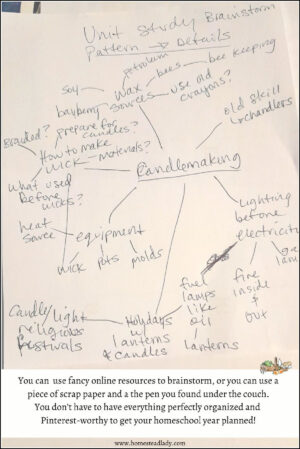 Unit Study Brainstorm
Pattern → Details
petroleum
bees
bee keeping
Soy
Wax
Sources
use old
crayons?
bayberry
prepare for
candles?
Braided?
How to make
wick
materials?
old skill
chandlers
Candlemaking
what used
before
wicks?
heat
source
equipment
wick
pots
molds
Lighting
before
electricit
fire
inside
+
out
fuel
lamps
like
oil
lanterns
Candle/light
religious
festivals
Holydays
w/
lanterns
& candles
You can use fancy online resources to brainstorm, or you can use a
piece of scrap paper and a the pen you found under the couch.
You don't have to have everything perfectly organized and
Pinterest-worthy to get your homeschool year planned!
www.homesteadlady.com